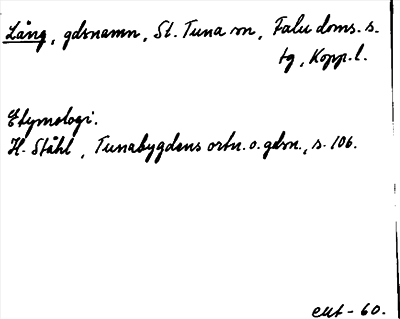 Lång, gdsnamn, St. Tuna sn, Falu doms. s.
tg, Kopp. l.
Etymologi.
H. Ståhl, Tunabygdens ortn. o. gdsn., s. 106.
EUt - 60.